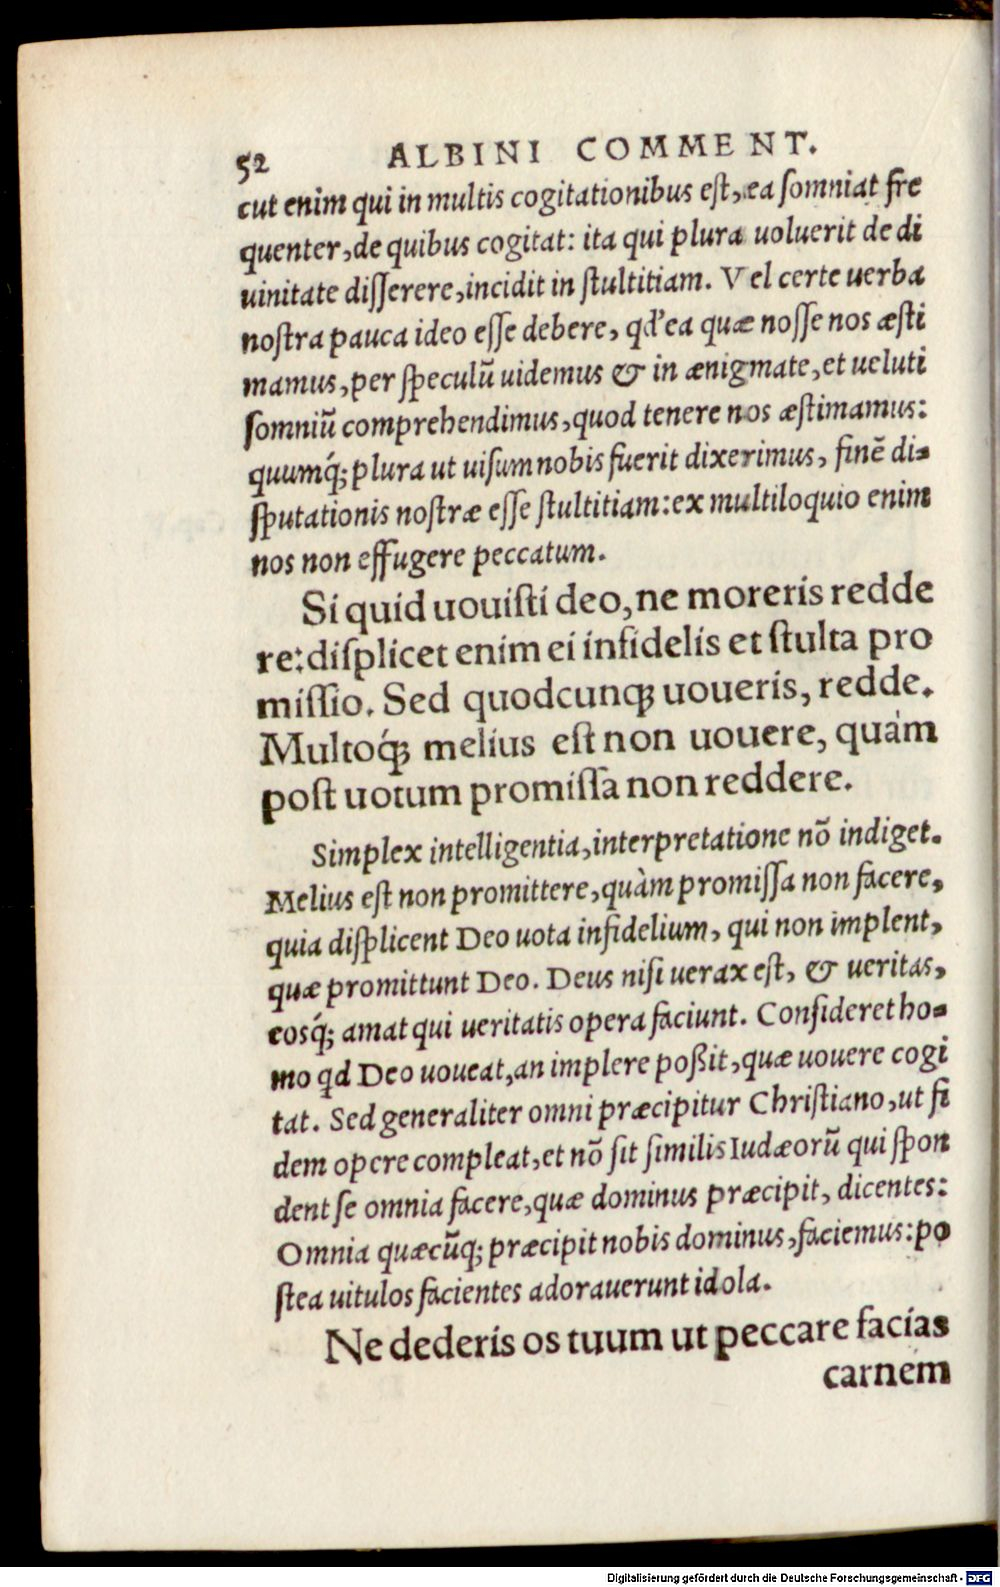 52 ALBINI COMMENT.
cut enim qui in multis cogitationibus eſt, ea ſomniat fre
quenter, de quibus cogitat: ita qui plura uoluerit de di
uinitate diſſerere, incidit in ſtultitiam. Vel certe uerba
noſtra pauca ideo eſſe debere, qd' ea quæ noſſe nos æſti
mamus, per ſpeculũ uidemus & in ænigmate, et ueluti
ſomniũ comprehendimus, quod tenere nos æſtimamus:
quumq́; plura ut uiſum nobis fuerit dixerimus, finẽ di-
ſputationis noſtræ eſſe ſtultitiam: ex multiloquio enim
nos non effugere peccatum.
Si quid uouiſti deo, ne moreris redde
re: diſplicet enim ei infidelis et ſtulta pro
miſſio. Sed quodcunq; uoueris, redde.
Multoq́; melius eſt non uouere, quàm
poſt uotum promiſſa non reddere.
Simplex intelligentia, interpretatione nõ indiget.
Melius eſt non promittere, quàm promiſſa non facere,
quia diſplicent Deo uota infidelium, qui non implent,
quæ promittunt Deo. Deus niſi uerax eſt, & ueritas,
eosq́; amat qui ueritatis opera faciunt. Conſideret ho-
mo qd Deo uoueat, an implere poßit, quæ uouere cogi
tat. Sed generaliter omni præcipitur Chriſtiano, ut fi
dem opere compleat, et nõ ſit ſimilis Iudæorũ qui ſpon
dent ſe omnia facere, quæ dominus præcipit, dicentes:
Omnia quæcũq; præcipit nobis dominus, faciemus: po
ſtea uitulos facientes adorauerunt idola.
Ne dederis os tuum ut peccare facias
carnem
Digitalisierung gefördert durch die Deutsche Forschungsgemeinschaft - DFG